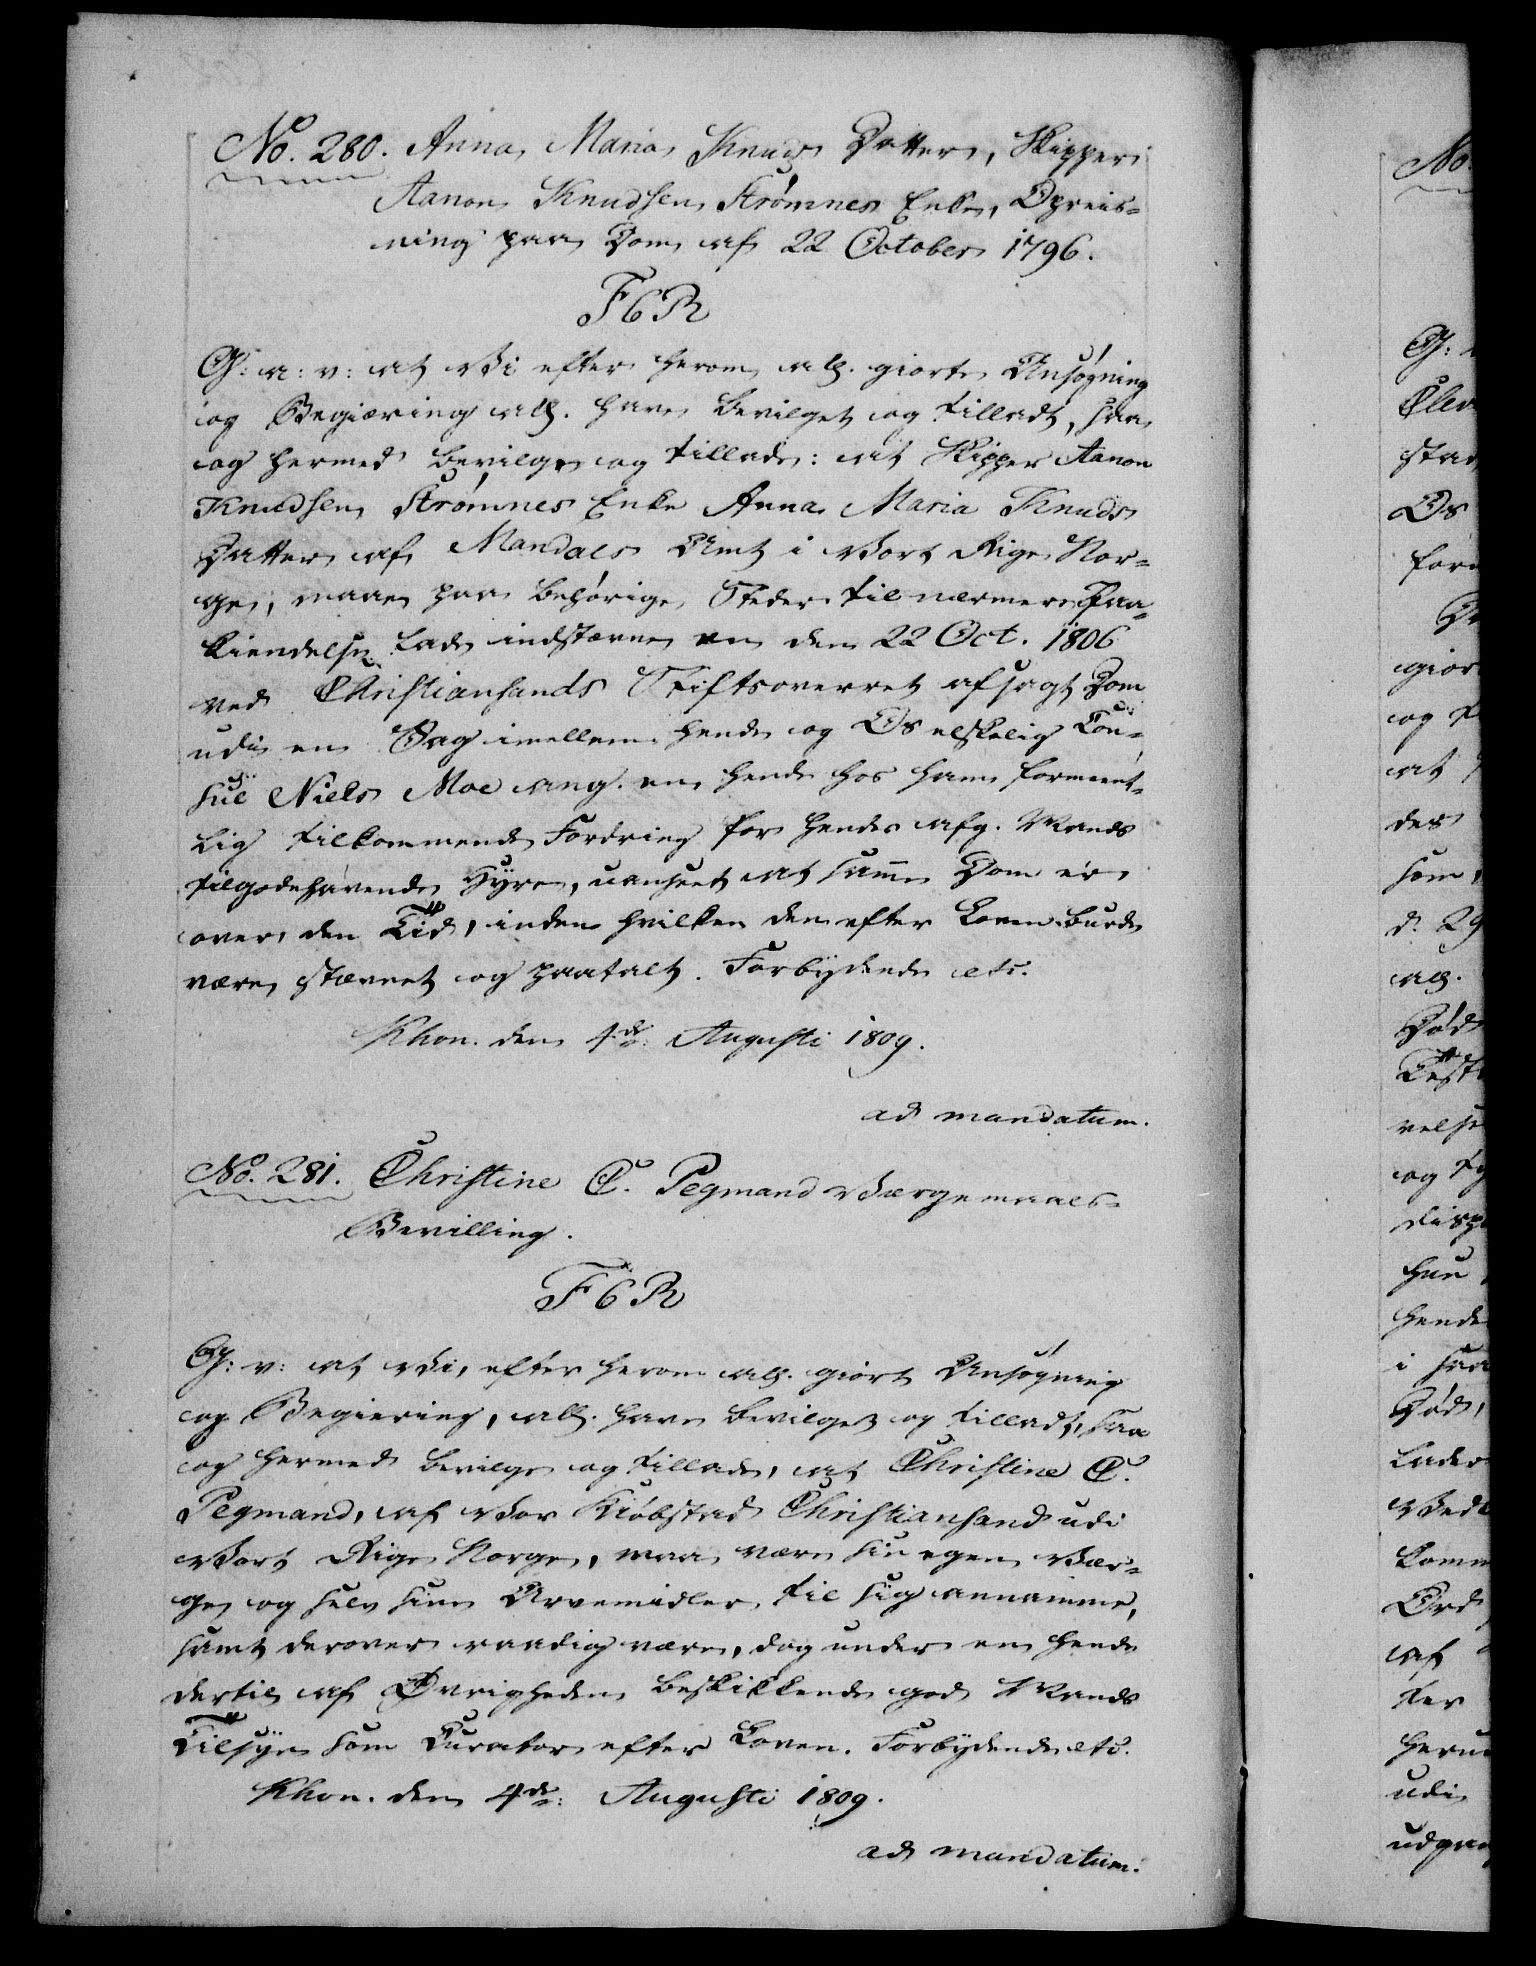 No. 280. Anna Maria Knuds Datter, Skipper
Aanon Knudsen Strømnes Enke, Opreis-
ning paa Dom af 22 October 1796.
F6R
G: a: v: at Vi efter herom all. giorte Ansøgning
og Begiæring all. have bevilget og tilladt, saa
og hermed bevilge og tillade: at Skipper Aanon
Knudsen Strømnes Enke Anna Maria Knuds
Datter af Mandals Amt i Vort Rige Nor-
ge, maae paa behørige Steder til nærmere Paa-
kiendelse lade indstævne en den 22 Oct. 1806
ved Christiansands Stiftsoverret afsagt Dom
udi en Sag imellem hende og Os elskelig Con-
sul Niels Moe ang. en hende hos ham formeent-
lig tilkommende Fordring for hendes afg. Mands
tilgodehavende Hyre, uanseet at samme Dom er
over den Tid, inden hvilken den efter Loven burde
være stævnet og paatalt. Forbydende etc.
Khvn. den 4de Augusti 1809.
ad mandatum.
No. 281. Christine C. Pegmand Værgemaals-
Bevilling.
F6R
G: v: at Vi, efter herom all. giort Ansøgning
og Begiering, all. have bevilget og tilladt, saa
og hermed bevilge og tillade, at Christine C.
Pegmand, af Vor Kiøbstad Christiansand udi
Vort Rige Norge, maa være sin egen Vær-
ge og selv sine Arvemidler til sig annamme,
samt derover raadig være, dog under en hende
dertil af Øvrigheden beskikkende god Mands
Tilsyn som Curator efter Loven. Forbydende etc.
Khvn. den 4de Augusti 1809.
ad mandatum.